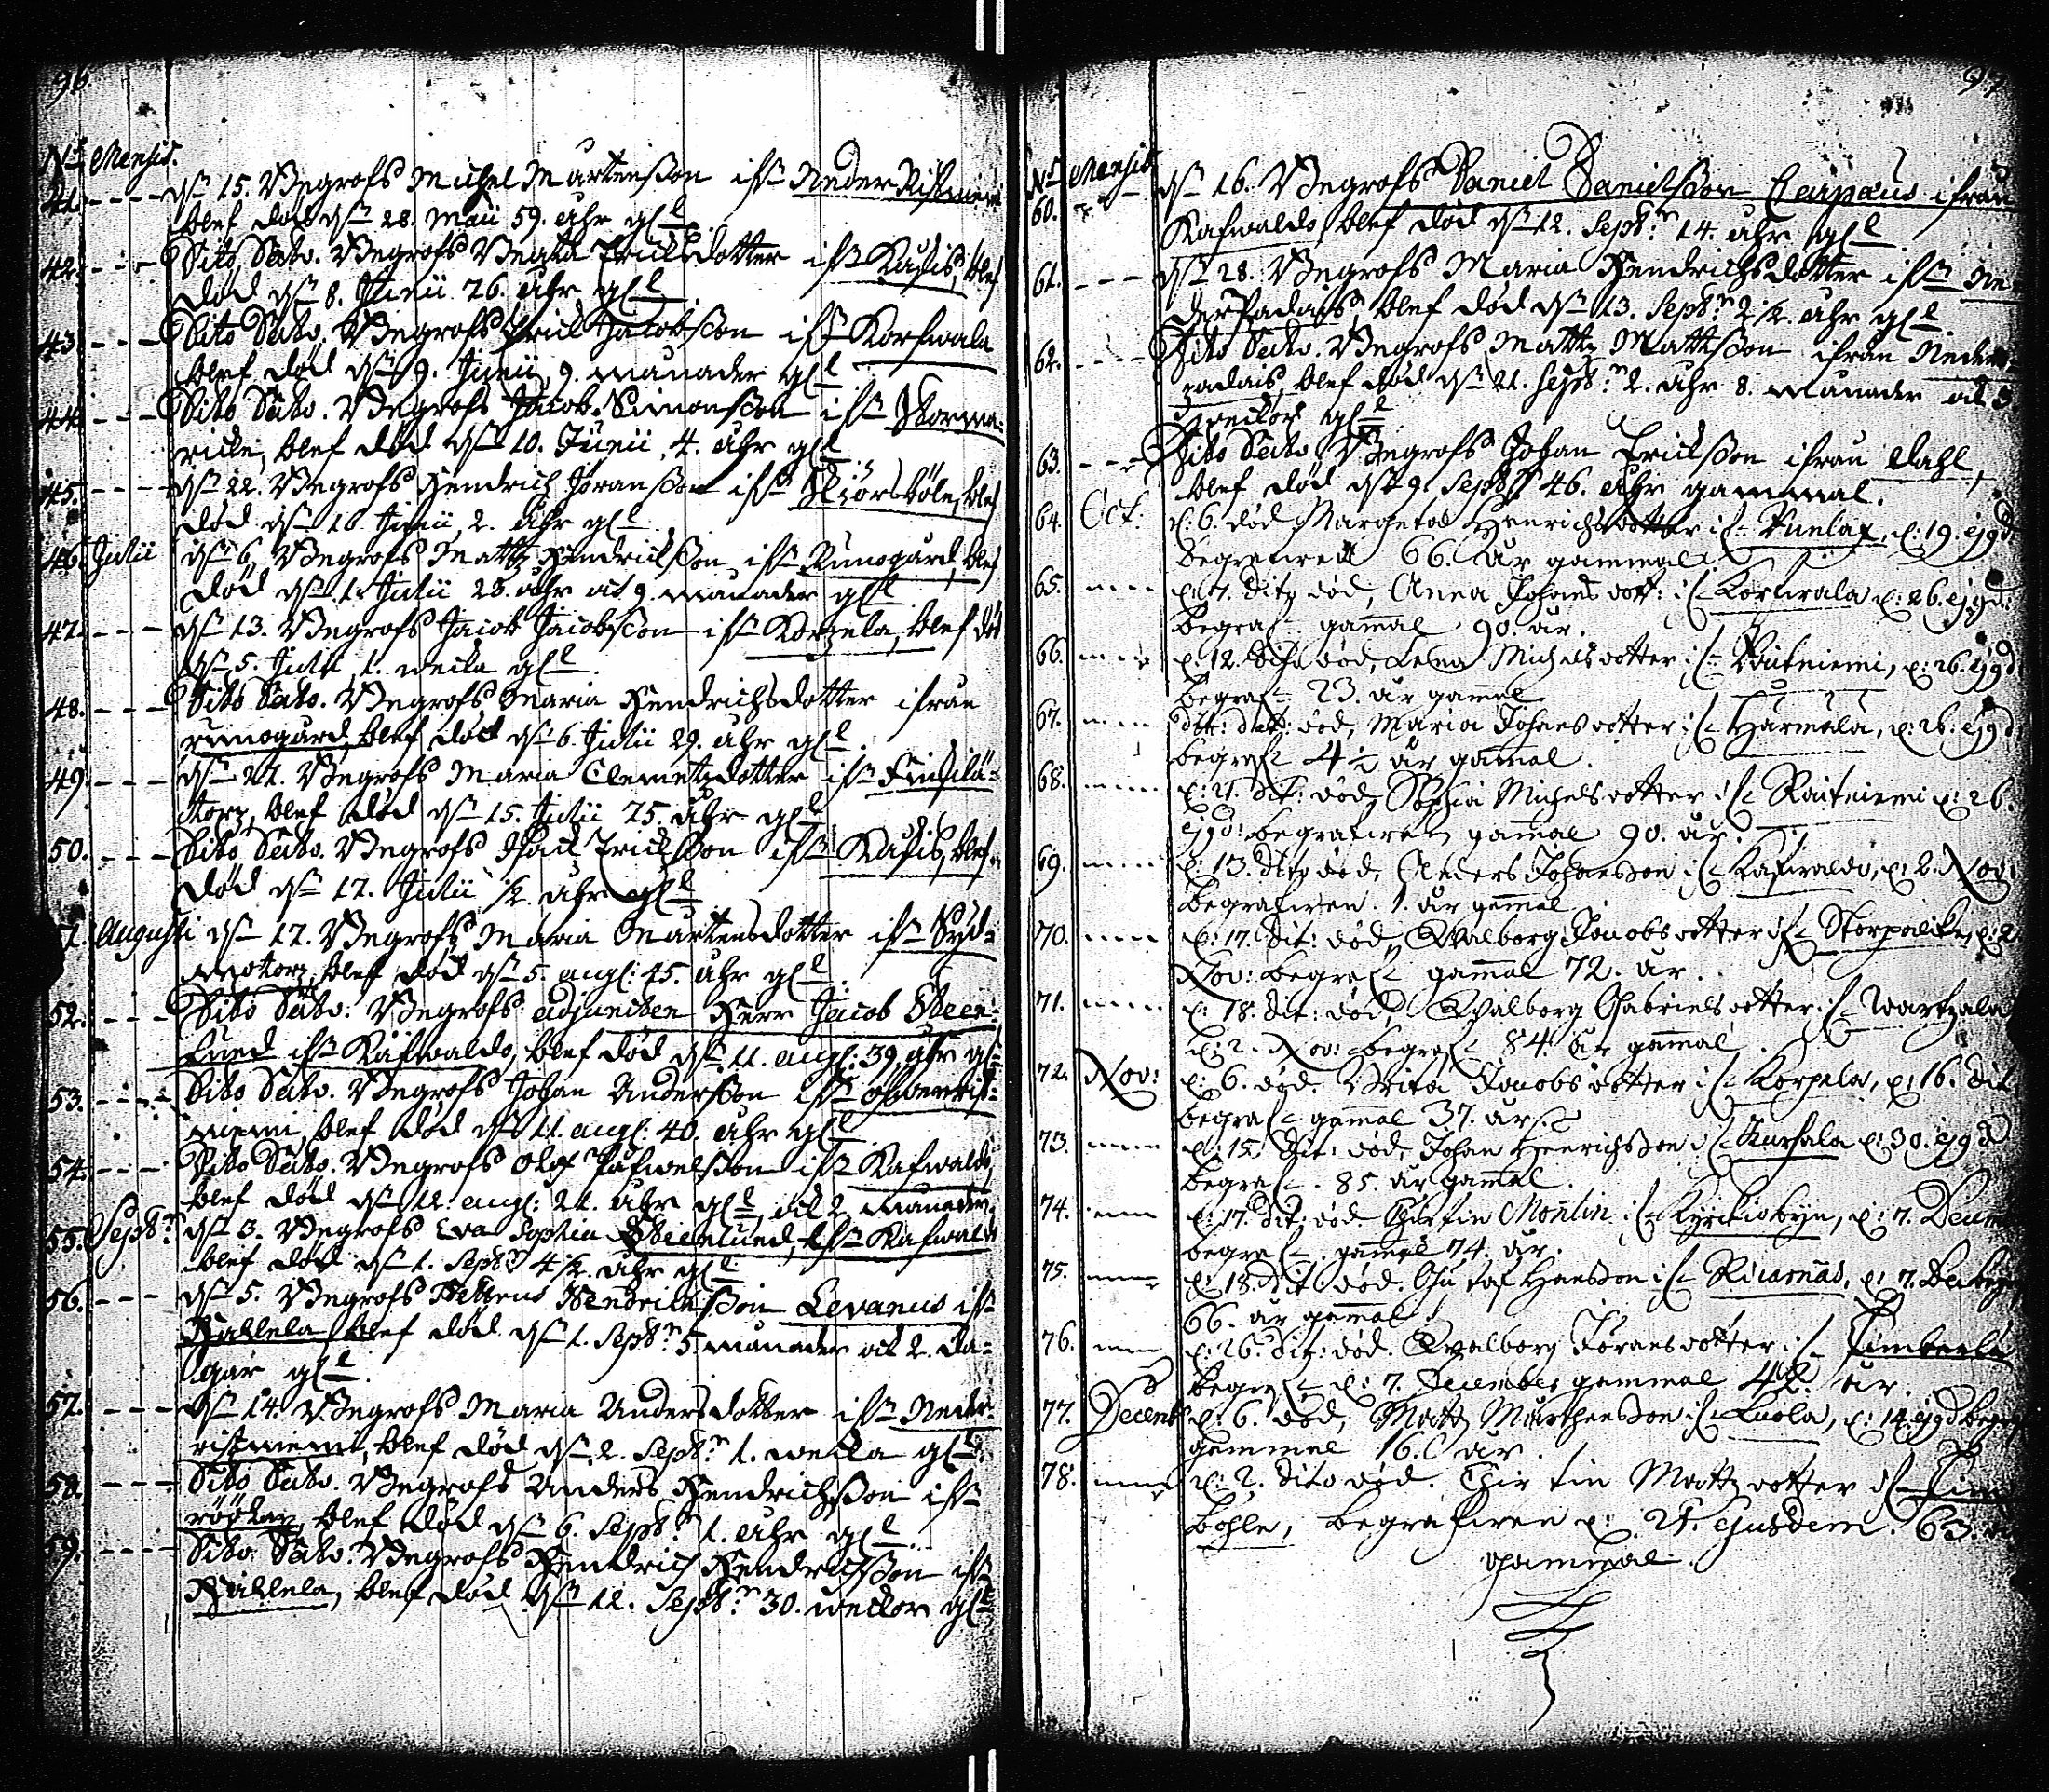 96.
No Mensis.
41. - - - dn 15. Begrofs Michel Mårtensson ifn Neder Ristniemi
blef död dn 28. Maii 59. åhr gl
42. - - - Dito Dato. Begrofs Beata Ericksdotter ifn Kausis, blef
död dn 8. Junii 76. åhr gl
43. - - - Dito Dato. Begrofs Erick Jacobsson ifn Korswala
blef död dn 9. Junii, 9. månader gl
44. - - - Dito Dato. Begrofs Jacob Simonsson ifn Storma-
ricke, blef död dn 10. Junii, 4. åhr gl
45. - - - dn 22. Begrofs Hendrich Jöransson ifn Skiörsböle, blef
död dn 16. Junii, 2. åhr gl
46. Julii dn 6. Begrofs Mattz Hendricksson ifn Runogård, blef
död dn 1. Julii 28. åhr at 9. månader gl
47. - - - dn 13. Begrofs Jacob Jacobsson ifn Korpela, blef död
dn 5. Julii, 1. wecka gl
48. - - - Dito Dato. Begrofs Maria Hendrichsdotter ifrån
runogård, blef död dn 6. Julii 29. åhr gl
49. - - - dn 21. Begrofs Maria Clemetzdotter ifn Finsilä-
torp, blef död dn 15. Julii 75. åhr gl
50. - - - Dito Dato. Begrofs Isack Ericksson ifn Kausis, blef
död dn 17. Julii 1/2. åhr gl
51. Augusti dn 17. Begrofs Maria Mårtensdotter ifn Syd-
motorp, blef död dn 5. aug: 45. åhr gl
52. - - - Dito Dato. Begrofs adjuncten Herr Jacob Steen-
lund ifn Kafwaldo, blef död dn 11. aug: 39 åhr gl
53. - - - Dito Dato. Begrofs Johan Andersson ifn öfwerrist-
niemi, blef död dn 11. aug: 40. åhr gl
54. - - - Dito Dato. Begrofs Olof Påfwelsson ifn Kafwaldo,
blef död dn 12. aug: 21. åhr gl at 2 månader
55. Septbr dn 3. Begrofs Eva Sophia Steenlund, ifn Kafwaldo
blef död dn 1. Septbr 4 1/2. åhr gl
56. - - - dn 5. Begrofs Petrus Hendricksson Levanus ifn
Hallela, blef död dn 1. Septbr 5 månader at 2. da-
gar gl
57. - - - dn 14. Begrofs Maria Andersdotter ifn Neder-
ristniemi, blef död dn 2. Septbr 1. wecka gl
58. - - - Dito Dato. Begrofs Anders Hendrichsson ifn
blef död dn 6. Septbr 1. åhr gl
59. - - - Dito Dato. Begrofs Hendrich Hendrichsson ifn
Hallela, blef död dn 12. Septbr 30. weckor gl
97
No Mensis
60. dn 16. Begrofs Daniel Danielsson Carpæus ifrån
Kafwaldo, blef död dn 12. Septbr 14. åhr gl
61. - - - dn 28. Begrofs Maria Hendrichsdotter ifn Ne-
derPadais, blef död dn 13. Septbr 2 1/2. åhr gl
62. - - - Dito Dato. Begrofs Mattz Mattsson ifrån Neder-
padais, blef död dn 21. Septbr 2. åhr 8. månader at 3
weckor gl
63. - - - Dito Dato Begrofs Johan Ericksson ifrån Dahl,
blef död dn 9. Septbr 46. åhr gammal.
64. Oct: d: 6. död Margeta Henrichsdotter if Punlax, d: 19. ejgd
begrafwen 66. år gammal.
65. d: 7. Dito död, Anna Johansdott: if Korswala d: 26. ejgd:
begraf gammal 90. år.
66. d: 12. Dito död, Lena Michelsdotter if Raitniemi, d: 26. ejgd
begraf 23. år gammal
67. dit: dat: död, Maria Johansdotter if Harmala, d: 26: ejgd
begraf 4 1/2 år gammal.
68. d: 21. dit: död, Sophia Michelsdotter if Raitniemi d: 26.
ejgd: begrafwen gammal 90. år.
69. d: 13. dito död, Anders Johansson if Kafwaldo, d: 2. Nov:
begrafwen. 1. år gammal
70. d: 17. dit: död, Walborg Jacobsdotter if Storpadike, d: 2
Nov: begraf gammal 72. år.
71. d: 18. dit: död, Walborg Gabrielsdotter if Wartzala
d: 2. Nov: begraf 84. år gammal
72. Nov: d: 6. död. Brita Jacobsdotter if Korpela, d: 16. Dit
begraf gammal 37. år.
73. d: 15. Dit: död, Johan Henrichsson if Kursala d: 30. ejgd
begraf. 85. år gammal.
74. d: 17. dit: död. Chirstin Montin if Kyrckiobyn, d: 7. Decem
begraf. gammal 74. år.
75. d: 18. Dit död. Gustaf Hansson if d: 7. Dec begr
66. år gammal.
76. d: 26. dit: död. Walborg Jöransdotter if
begraf d: 7. December gammal år.
77. Decemb d: 6. död, Mattz Mårthensson if Luola, d: 14 ejgd begr
gammal 16. år.
78. d: 2. dito död. Chirstin Mattzdotter if
bohle, begrafwen d: 21. ejusdem. 63. år
gammal.